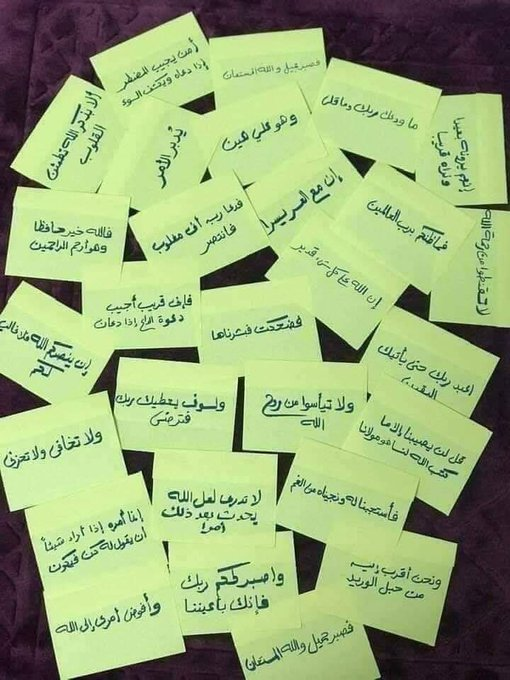 أمن يجيب المضطر
إذا دعاه ويكشف السوء
فصبر جميل والله المستعان
ما ودعك ربك وما قلى
إنهم يرونه بعيدا
ونراه قريبا
ألا بذكر الله تطمئن
القلوب
يُدبر الأمر
وهو علي هين
إن مع العسر يسرا
فما ظنكم برب العالمين
لا تقنطوا من رحمة الله
فالله خير حافظا
وهو أرحم الراحمين
فدعا ربه أني مغلوب
فانتصر
إن الله على كل شيء قدير
إن ينصركم الله فلا غالب
لكم
فإني قريب أجيب
دعوة الداع إذا دعان
فضحكت فبشرناها
اعبد ربك حتى يأتيك
اليقين
ولا تخافي ولا تحزني
ولسوف يعطيك ربك
فترضى
ولا تيأسوا من روح
الله
قل لن يصيبنا إلا ما
كتب الله لنا هو مولانا
إنما أمره إذا أراد شيئا
أن يقول له كن فيكون
لا تدري لعل الله
يحدث بعد ذلك
أمرا
فاستجبنا له ونجيناه من الغم
وأفوض أمري إلى الله
واصبر لحكم ربك
فإنك بأعيننا
ونحن أقرب إليه
من حبل الوريد
فصبر جميل والله المستعان